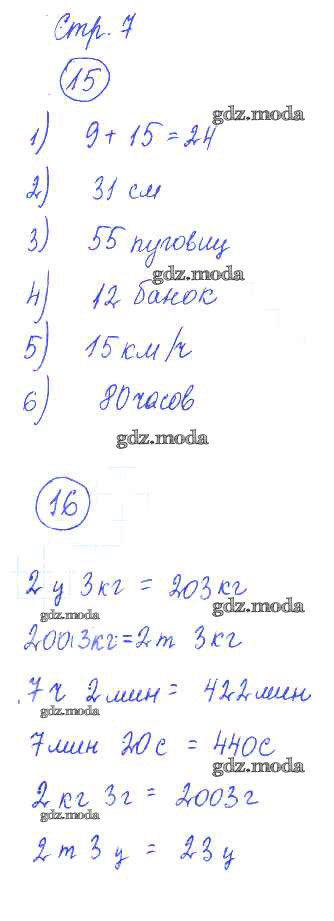 Стр. 7
15
gdz.moda
1) 9 + 15 = 24
2) 31 см
3) 55 пуговиц
gdz.moda
4) 12 банок
5) 15 км/ч
6) 80 часов
gdz.moda
16
2 ц 3 кг = 203 кг
gdz.moda
gdz.moda
2003 кг = 2 т 3 кг
7 ч 2 мин = 422 мин
gdz.moda
7 мин 20 с = 440 с
gdz.moda
2 кг 3 г = 2003 г
gdz.moda
2 т 3 ц = 23 ц